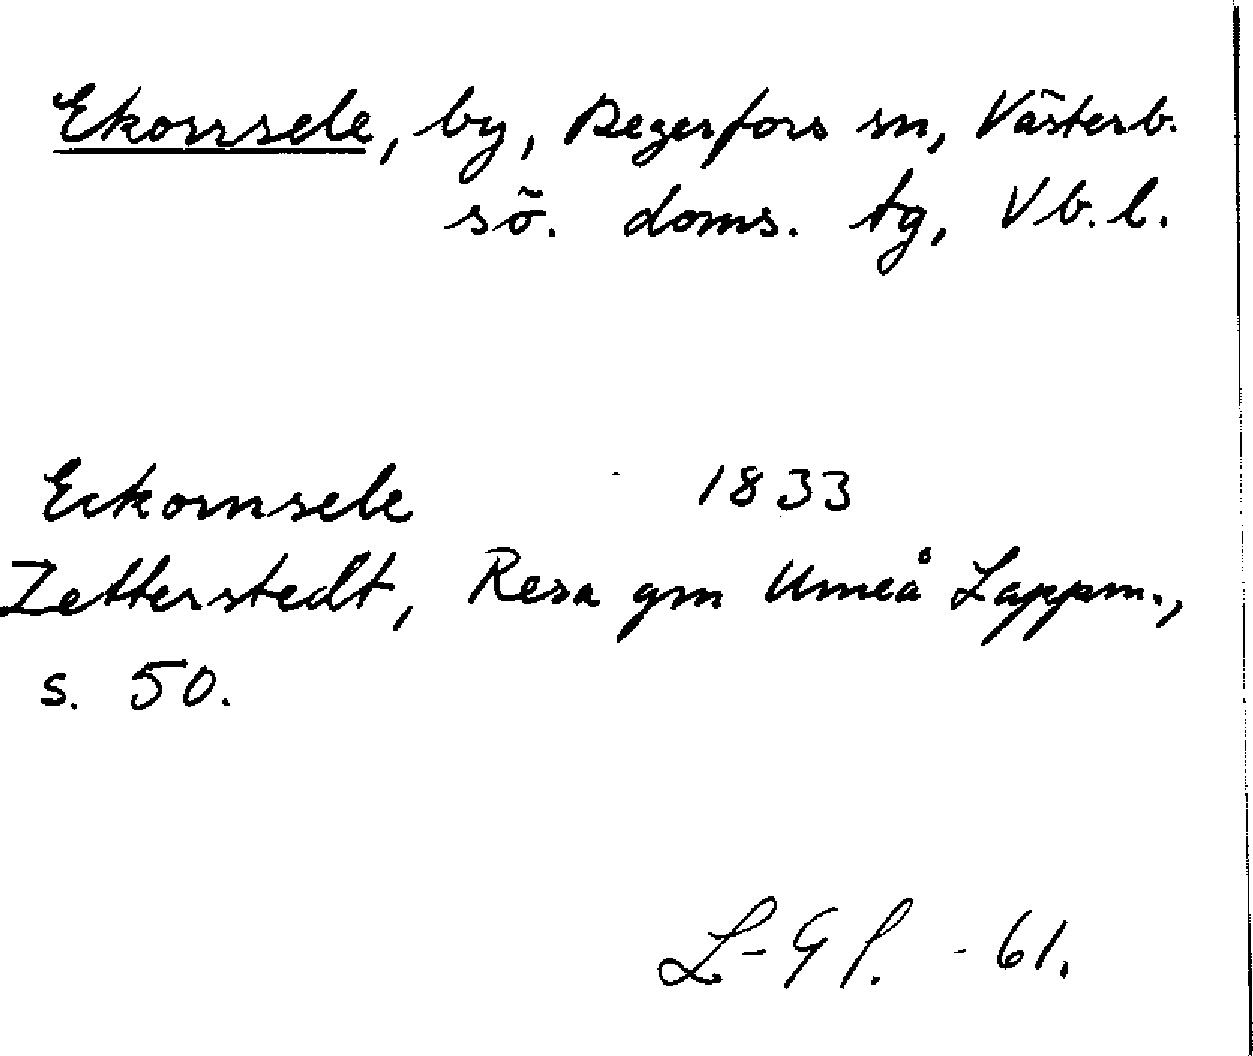 Ekorrsele, by, Degerfors sn, Västerb.
sö. doms. tg, Vb. l.
Eckornsele 1833
Zetterstedt, Resa gm Umeå Lappm.,
s. 50.
L-G P. -61.